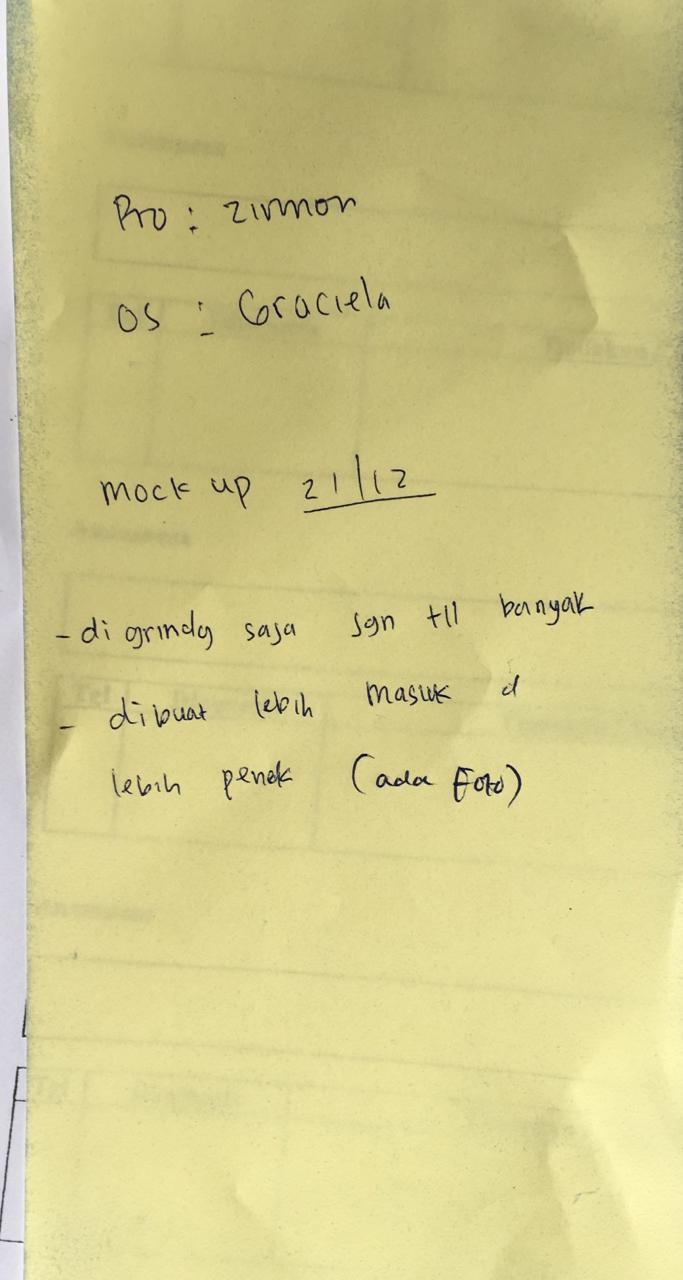 Pro : zirmon
OS : Graciela
mock up 21/12
- di grinding saja jgn tll banyak
- dibuat lebih masuk d
lebih pendek (ada Foto)